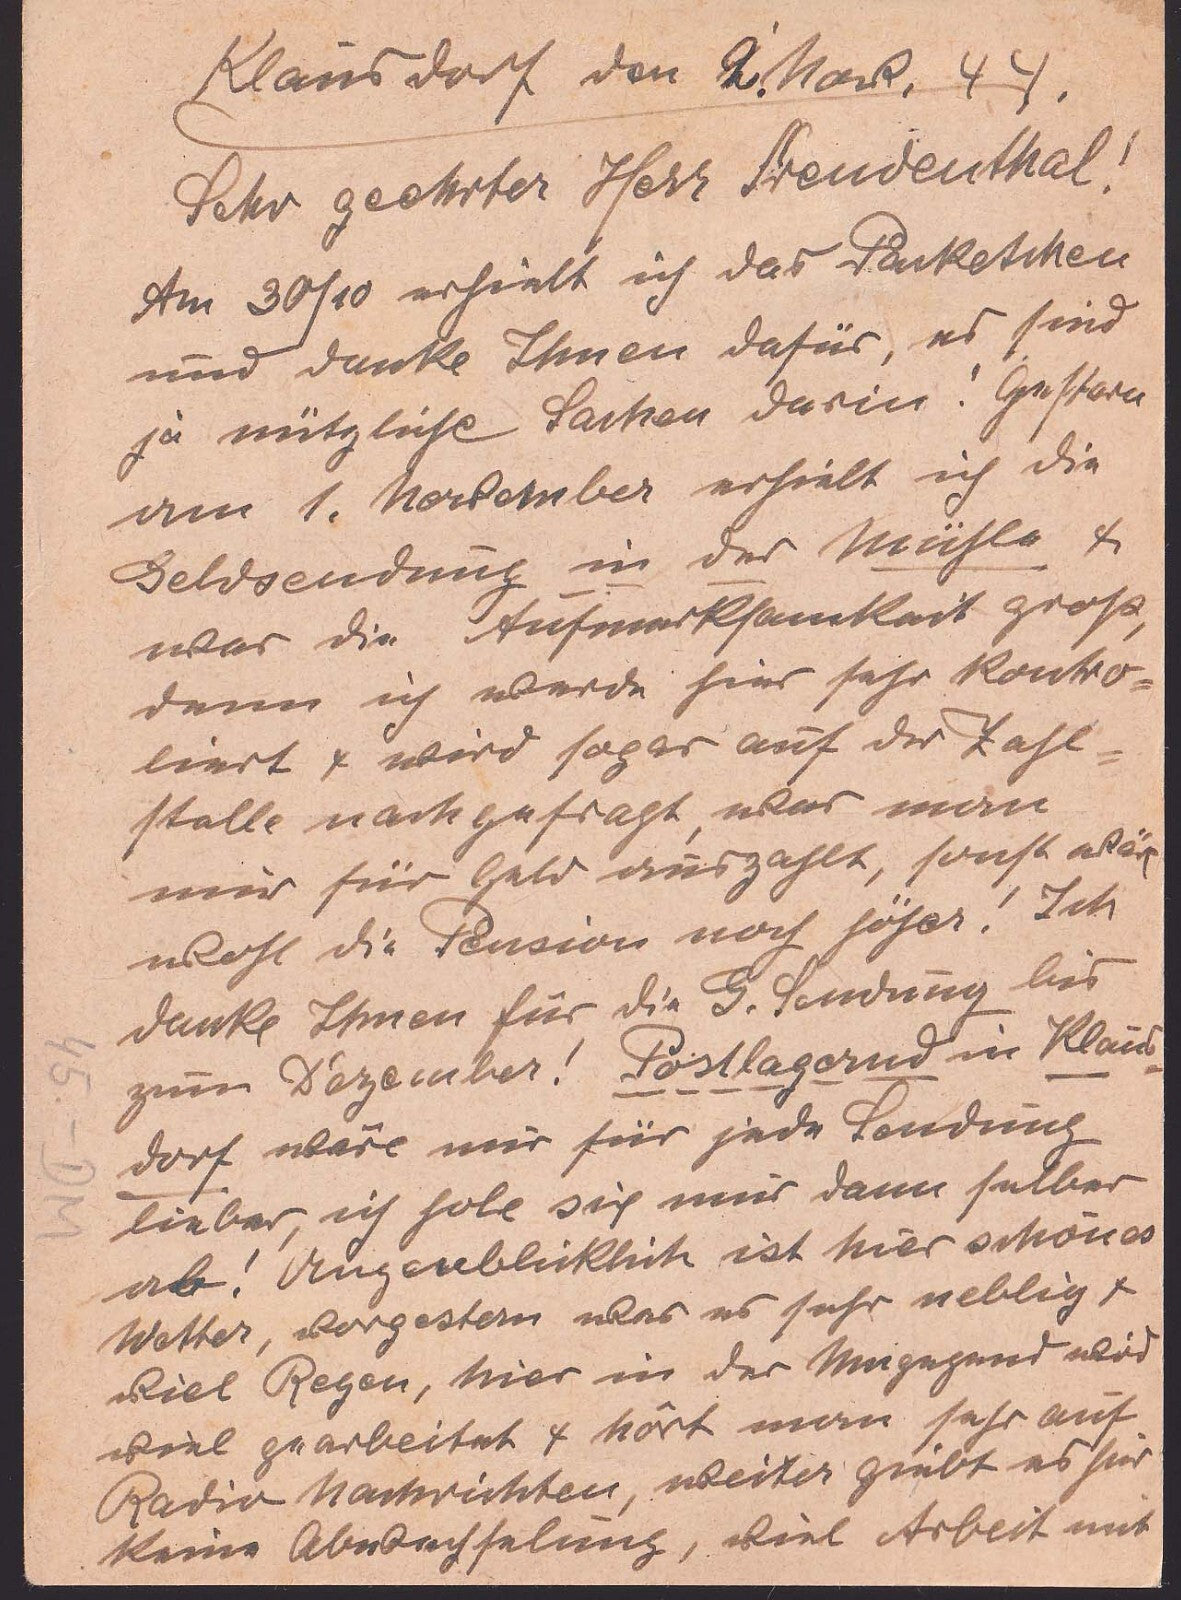 Klausdorf den 2. Nov. 44.
Sehr geehrter Herr Freudenthal!
Am 30/10 erhielt ich das Paketchen
und danke Ihnen dafür, es sind
ja nützliche Sachen darin! Gestern
am 1. November erhielt ich die
Geldsendung in der Mühle &
war die Aufmerksamkeit groß,
denn ich werde hier sehr kontro=
liert & wird sogar auf der Zahl=
stelle nachgefragt, was man
mir für Geld auszahlt, sonst wär
wohl die Pension noch höher! Ich
danke Ihnen für die G. Sendung bis
zum Dezember! Postlagernd in Klaus=
dorf wäre mir für jede Sendung
lieber, ich hole sie mir dann selber
ab! Augenblicklich ist hier schönes
Wetter, vorgestern war es sehr neblig &
viel Regen, hier in der Umgegend wird
viel gearbeitet & hört man sehr auf
Radio Nachrichten, weiter giebt es hier
keine Abwechselung, viel Arbeit mit
45.- DM